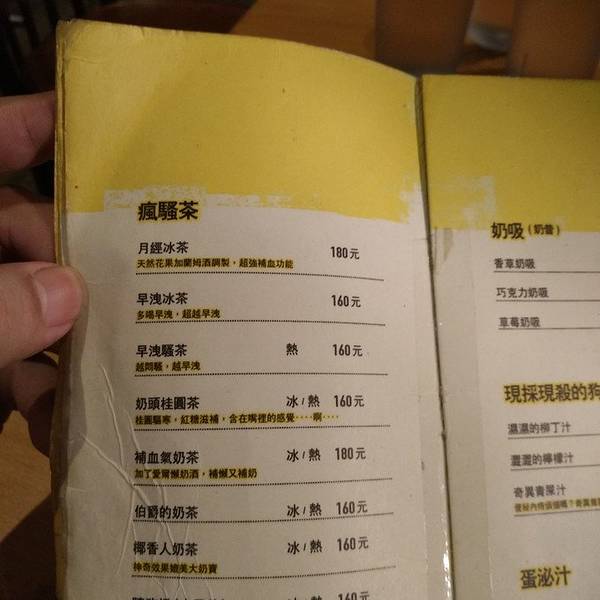 瘋騷茶
月經冰茶 180元
天然花果加蘭姆酒調製，超強補血功能
早洩冰茶 160元
多喝早洩，超越早洩
早洩騷茶 熱 160元
越悶騷，越早洩
奶頭桂圓茶 冰/熱 160元
桂圓驅寒，紅糖滋補，含在嘴裡的感覺‥‥啊‥‥
補血氣奶茶 冰/熱 180元
加了愛爾懶奶酒，補懶又補奶
伯爵的奶茶 冰/熱 160元
椰香人奶茶 冰/熱 160元
神奇效果媲美大奶寶
冰/熱 160元
奶吸（奶昔）
香草奶吸
巧克力奶吸
草莓奶吸
現採現殺的狗
濕濕的柳丁汁
澀澀的檸檬汁
奇異青屎汁
蛋泌汁